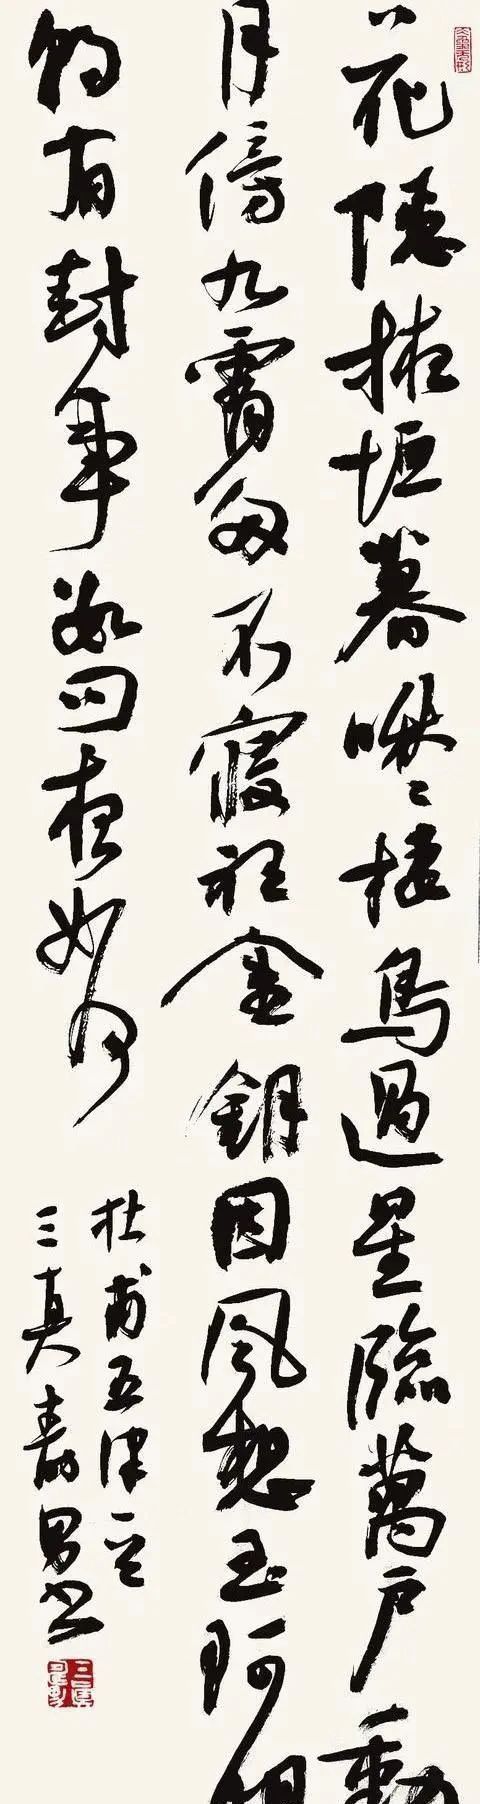 花隱掖垣暮啾々棲鳥過星臨萬戶動
月傍九霄多不寢聽金鈅因風想玉珂明
朝有封事數問夜如何
杜甫五律一首
三真壽男書